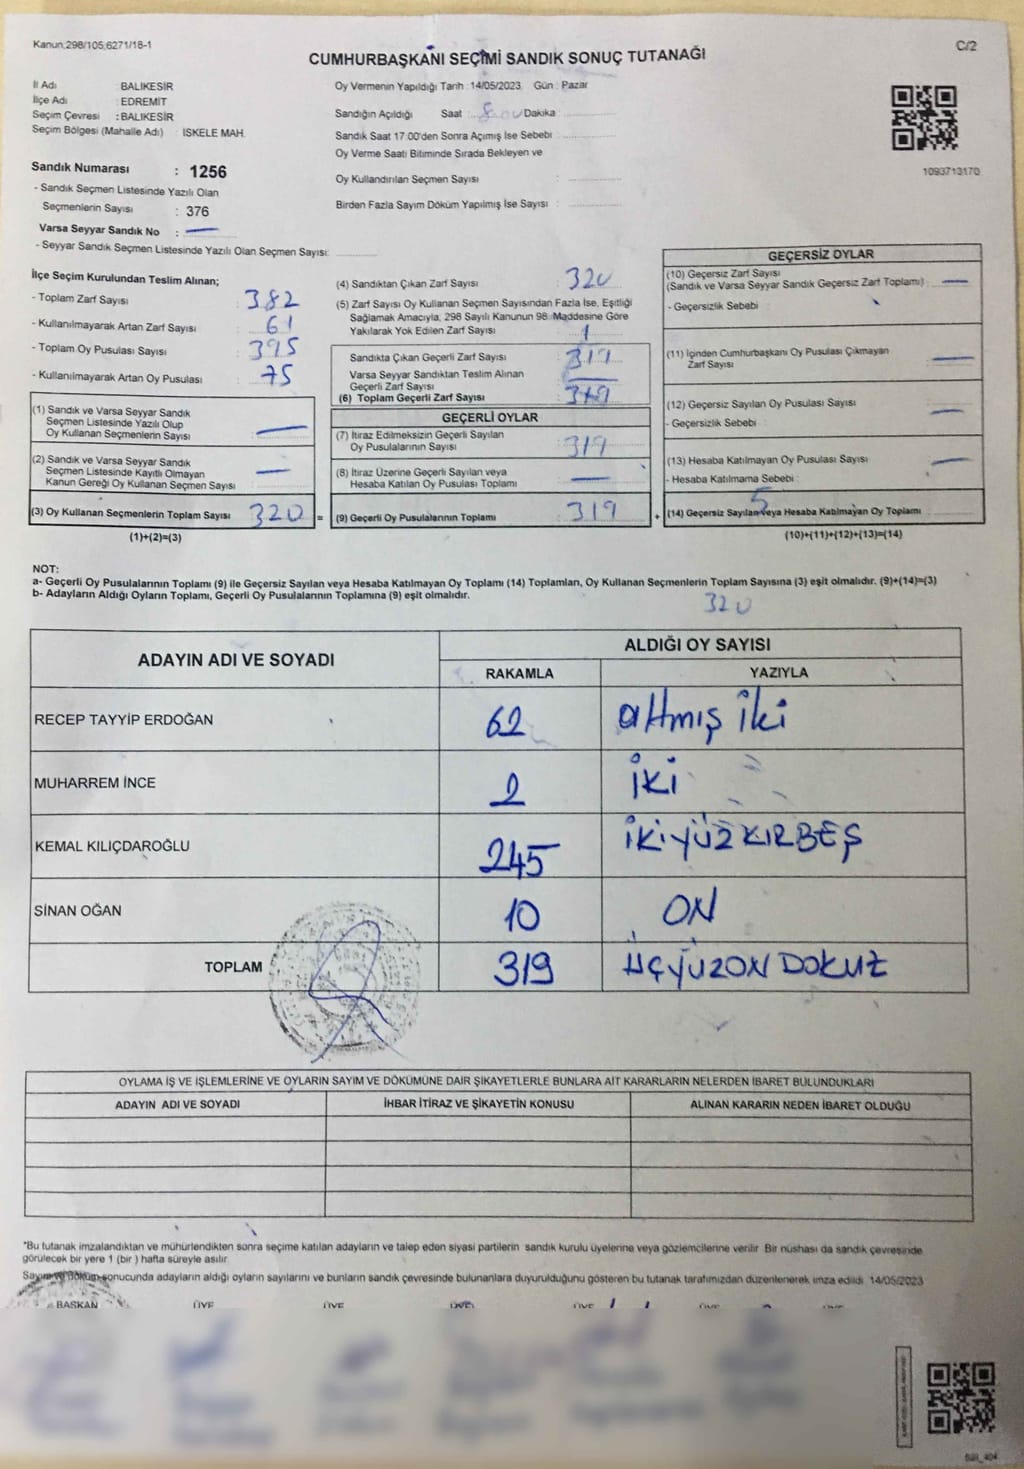 Kanun:298/105;6271/18-1
C/2
CUMHURBAŞKANI SEÇİMİ SANDIK SONUÇ TUTANAĞI
İl Adı : BALIKESİR
İlçe Adı : EDREMİT
Seçim Çevresi : BALIKESİR
Seçim Bölgesi (Mahalle Adı) : İSKELE MAH.
Sandık Numarası : 1256
- Sandık Seçmen Listesinde Yazılı Olan
Seçmenlerin Sayısı : 376
Varsa Seyyar Sandık No : —
- Seyyar Sandık Seçmen Listesinde Yazılı Olan Seçmen Sayısı:
Oy Vermenin Yapıldığı Tarih : 14/05/2023 Gün : Pazar
Sandığın Açıldığı Saat : 8 Dakika :
Sandık Saat 17:00'den Sonra Açımış İse Sebebi :
Oy Verme Saati Bitiminde Sırada Bekleyen ve
Oy Kullandırılan Seçmen Sayısı :
Birden Fazla Sayım Döküm Yapılmış İse Sayısı :
1093713170
İlçe Seçim Kurulundan Teslim Alınan;
- Toplam Zarf Sayısı : 382
- Kullanılmayarak Artan Zarf Sayısı : 61
- Toplam Oy Pusulası Sayısı : 395
- Kullanılmayarak Artan Oy Pusulası : 75
(1) Sandık ve Varsa Seyyar Sandık
Seçmen Listesinde Yazılı Olup
Oy Kullanan Seçmenlerin Sayısı —
(2) Sandık ve Varsa Seyyar Sandık
Seçmen Listesinde Kayıtlı Olmayan
Kanun Gereği Oy Kullanan Seçmen Sayısı —
(3) Oy Kullanan Seçmenlerin Toplam Sayısı 320 =
(1)+(2)=(3)
(4) Sandıktan Çıkan Zarf Sayısı : 320
(5) Zarf Sayısı Oy Kullanan Seçmen Sayısından Fazla İse, Eşitliği
Sağlamak Amacıyla, 298 Sayılı Kanunun 98. Maddesine Göre
Yakılarak Yok Edilen Zarf Sayısı : 1
Sandıkta Çıkan Geçerli Zarf Sayısı : 319
Varsa Seyyar Sandıktan Teslim Alınan
Geçerli Zarf Sayısı : —
(6) Toplam Geçerli Zarf Sayısı : 319
GEÇERLİ OYLAR
(7) İtiraz Edilmeksizin Geçerli Sayılan
Oy Pusulalarının Sayısı : 319
(8) İtiraz Üzerine Geçerli Sayılan veya
Hesaba Katılan Oy Pusulası Toplamı : —
(9) Geçerli Oy Pusulalarının Toplamı : 319 +
GEÇERSİZ OYLAR
(10) Geçersiz Zarf Sayısı
(Sandık ve Varsa Seyyar Sandık Geçersiz Zarf Toplamı) : —
- Geçersizlik Sebebi :
(11) İçinden Cumhurbaşkanı Oy Pusulası Çıkmayan
Zarf Sayısı : —
(12) Geçersiz Sayılan Oy Pusulası Sayısı : —
- Geçersizlik Sebebi :
(13) Hesaba Katılmayan Oy Pusulası Sayısı : —
- Hesaba Katılmama Sebebi :
(14) Geçersiz Sayılan veya Hesaba Katılmayan Oy Toplamı
(10)+(11)+(12)+(13)=(14)
NOT:
a- Geçerli Oy Pusulalarının Toplamı (9) ile Geçersiz Sayılan veya Hesaba Katılmayan Oy Toplamı (14) Toplamları, Oy Kullanan Seçmenlerin Toplam Sayısına (3) eşit olmalıdır. (9)+(14)=(3)
b- Adayların Aldığı Oyların Toplamı, Geçerli Oy Pusulalarının Toplamına (9) eşit olmalıdır.
320
ADAYIN ADI VE SOYADI ALDIĞI OY SAYISI
RAKAMLA YAZIYLA
RECEP TAYYİP ERDOĞAN 62 altmış iki
MUHARREM İNCE 2 İKİ
KEMAL KILIÇDAROĞLU 245 İKİYÜZKIRBEŞ
SİNAN OĞAN 10 ON
TOPLAM 319 ÜÇYÜZON DOKUZ
OYLAMA İŞ VE İŞLEMLERİNE VE OYLARIN SAYIM VE DÖKÜMÜNE DAİR ŞİKAYETLERLE BUNLARA AİT KARARLARIN NELERDEN İBARET BULUNDUKLARI
ADAYIN ADI VE SOYADI İHBAR İTİRAZ VE ŞİKAYETİN KONUSU ALINAN KARARIN NEDEN İBARET OLDUĞU
*Bu tutanak imzalandıktan ve mühürlendikten sonra seçime katılan adayların ve talep eden siyasi partilerin sandık kurulu üyelerine veya gözlemcilerine verilir. Bir nüshası da sandık çevresinde
görülecek bir yere 1 (bir ) hafta süreyle asılır.
Sayım ve döküm sonucunda adayların aldığı oyların sayılarını ve bunların sandık çevresinde bulunanlara duyurulduğunu gösteren bu tutanak tarafımızdan düzenlenerek imza edildi. 14/05/2023
BAŞKAN ÜYE ÜYE ÜYE ÜYE ÜYE